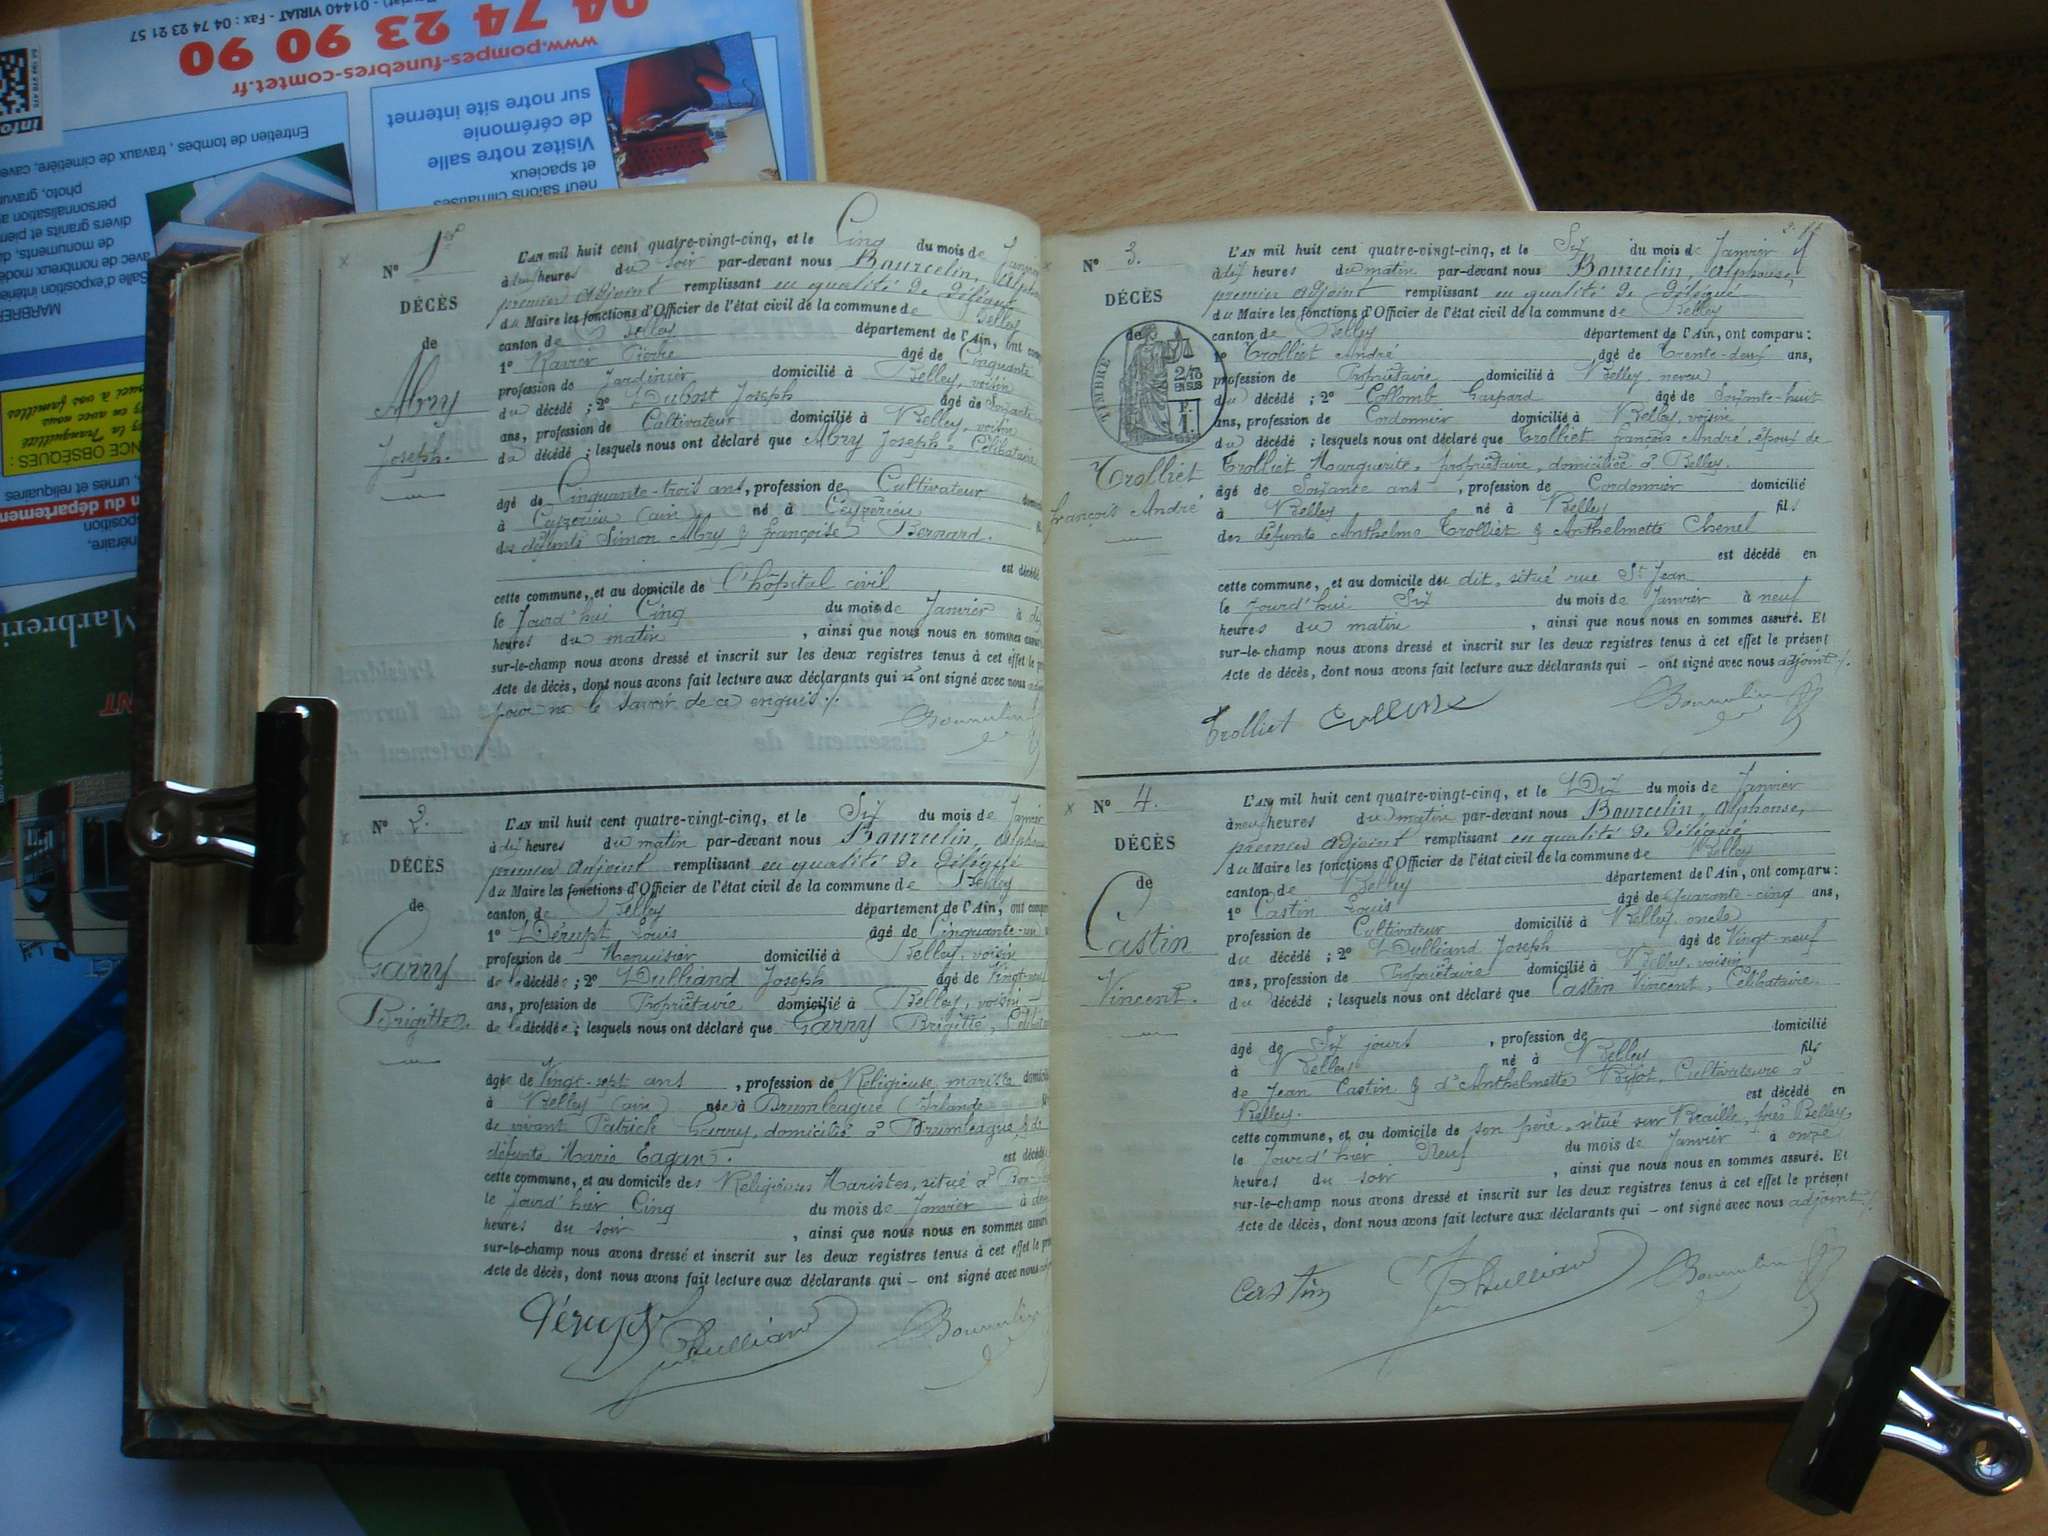 01440 VIRIAT - Fax : 04 74 23 21 57
04 74 23 90 90
www.pompes-funebres-comtet.fr
Visitez notre salle
de cérémonie
sur notre site internet
et spacieux
neuf salons climatisés
Entretien de tombes, travaux de cimetière,
N° 1er
DÉCÈS
de
Abry
Joseph.
L'AN mil huit cent quatre-vingt-cinq, et le Cinq du mois de
heures du soir par-devant nous Bourcelin,
premier adjoint remplissant en qualité de délégué
du Maire les fonctions d'Officier de l'état civil de la commune de Belley
canton de Belley département de l'Ain, ont
1° Ravier Pierre âgé de Cinquante
profession de Jardinier domicilié à Belley, voisin
du décédé ; 2° Dubost Joseph âgé de Soixante
ans, profession de Cultivateur domicilié à Belley, voisin
du décédé ; lesquels nous ont déclaré que Abry Joseph, Célibataire
âgé de Cinquante-trois ans, profession de Cultivateur
à Ceyzérieu (ain) né à Ceyzérieu
des défunts Simon Abry & françoise Bernard.
est décédé
cette commune, et au domicile de l'hôpital civil
le Jourd'hui Cinq du mois de Janvier à
heures du matin , ainsi que nous nous en sommes
sur-le-champ nous avons dressé et inscrit sur les deux registres tenus à cet effet le
Acte de décès, dont nous avons fait lecture aux déclarants qui n'ont signé avec nous
pour ne le savoir de ce enquis ./.
Bourcelin
N° 2.
DÉCÈS
de
Garry
Brigitte.
L'AN mil huit cent quatre-vingt-cinq, et le Six du mois de Janvier
à dix heures du matin par-devant nous Bourcelin,
premier adjoint remplissant en qualité de délégué
du Maire les fonctions d'Officier de l'état civil de la commune de Belley
canton de Belley département de l'Ain, ont
1° Dérupt Louis âgé de Cinquante-un
profession de Menuisier domicilié à Belley, voisin
de la décédée ; 2° Dulliand Joseph âgé de Vingt-neuf
ans, profession de Propriétaire domicilié à Belley, voisin
de la décédée ; lesquels nous ont déclaré que Garry Brigitte,
âgée de Vingt-sept ans , profession de Religieuse mariste
à Belley (ain) née à Drumleague (Irlande
de vivant Patrick Garry, domicilié à Drumleague & de
défunte Marie Eagan. est décédée
cette commune, et au domicile des Religieuses Maristes, situé à
le Jourd'hier Cinq du mois de Janvier à
heures du soir , ainsi que nous nous en sommes
sur-le-champ nous avons dressé et inscrit sur les deux registres tenus à cet effet le
Acte de décès, dont nous avons fait lecture aux déclarants qui — ont signé avec nous
Dérupt Dulliand Bourcelin
N° 3.
DÉCÈS
de
TIMBRE
Trolliet
François André
L'AN mil huit cent quatre-vingt-cinq, et le Six du mois de Janvier
à dix heures du matin par-devant nous Bourcelin, Alphonse,
premier adjoint remplissant en qualité de délégué
du Maire les fonctions d'Officier de l'état civil de la commune de Belley
canton de Belley département de l'Ain, ont comparu :
1° Trolliet André , âgé de Trente-deux ans,
profession de Propriétaire domicilié à Belley, neveu
du décédé ; 2° Collomb Gaspard âgé de Soixante-huit
ans, profession de Cordonnier domicilié à Belley, voisin
du décédé ; lesquels nous ont déclaré que Trolliet françois André, époux de
Trolliet Marguerite, propriétaire, domiciliée à Belley.
âgé de Soixante ans , profession de Cordonnier domicilié
à Belley né à Belley fils
des défunts Anthelme Trolliet & Anthelmette Chenel
est décédé en
cette commune, et au domicile du dit, situé rue St Jean
le Jourd'hui Six du mois de Janvier à neuf
heures du matin , ainsi que nous nous en sommes assuré. Et
sur-le-champ nous avons dressé et inscrit sur les deux registres tenus à cet effet le présent
Acte de décès, dont nous avons fait lecture aux déclarants qui — ont signé avec nous adjoint ./.
Trolliet Collomb Bourcelin
N° 4.
DÉCÈS
de
Castin
Vincent.
L'AN mil huit cent quatre-vingt-cinq, et le Dix du mois de Janvier
à neuf heures du matin par-devant nous Bourcelin, Alphonse,
premier adjoint remplissant en qualité de délégué
du Maire les fonctions d'Officier de l'état civil de la commune de Belley
canton de Belley département de l'Ain, ont comparu :
1° Castin Louis âgé de Quarante-cinq ans,
profession de Cultivateur domicilié à Belley, oncle
du décédé ; 2° Dulliand Joseph âgé de Vingt-neuf
ans, profession de Propriétaire domicilié à Belley, voisin
du décédé ; lesquels nous ont déclaré que Castin Vincent, Célibataire.
âgé de Six jours , profession de domicilié
à Belley né à Belley fils
de Jean Castin & d'Anthelmette Cultivateurs à
Belley. est décédé en
cette commune, et au domicile de son père, situé sur près Belley,
le Jourd'hier Neuf du mois de Janvier à onze
heures du soir , ainsi que nous nous en sommes assuré. Et
sur-le-champ nous avons dressé et inscrit sur les deux registres tenus à cet effet le présent
Acte de décès, dont nous avons fait lecture aux déclarants qui — ont signé avec nous adjoint ./.
Castin Dulliand Bourcelin